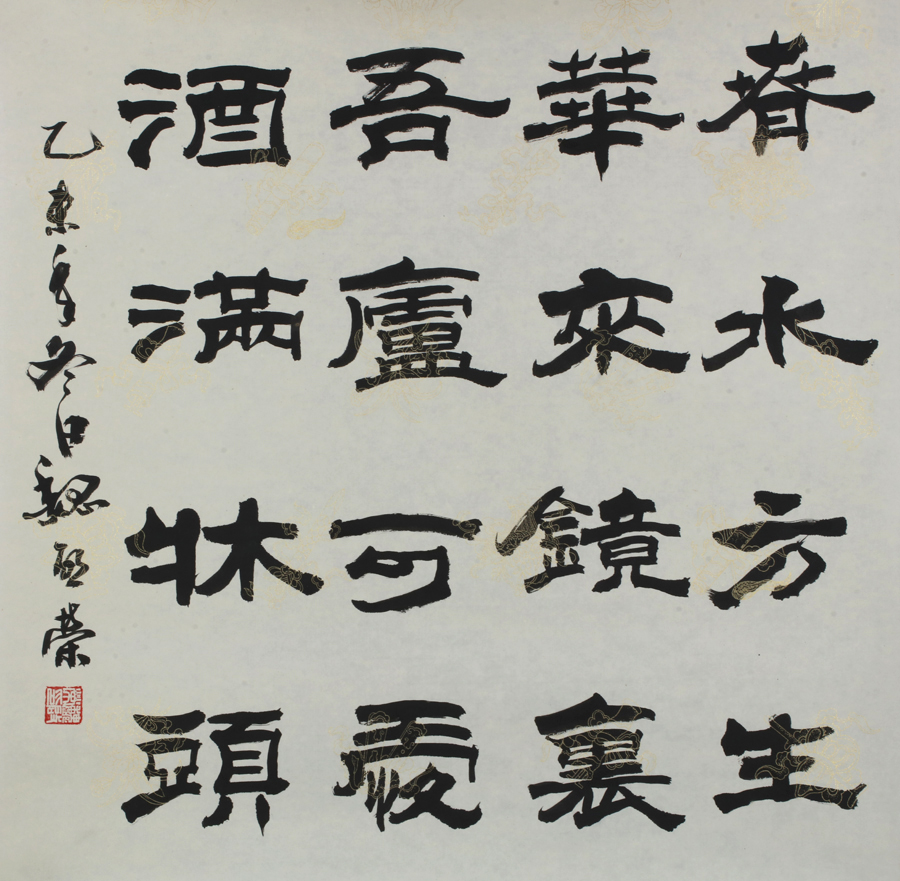 春水方生
華來鏡裏
吾廬可愛
酒滿牀頭
乙未年冬日魏啟榮